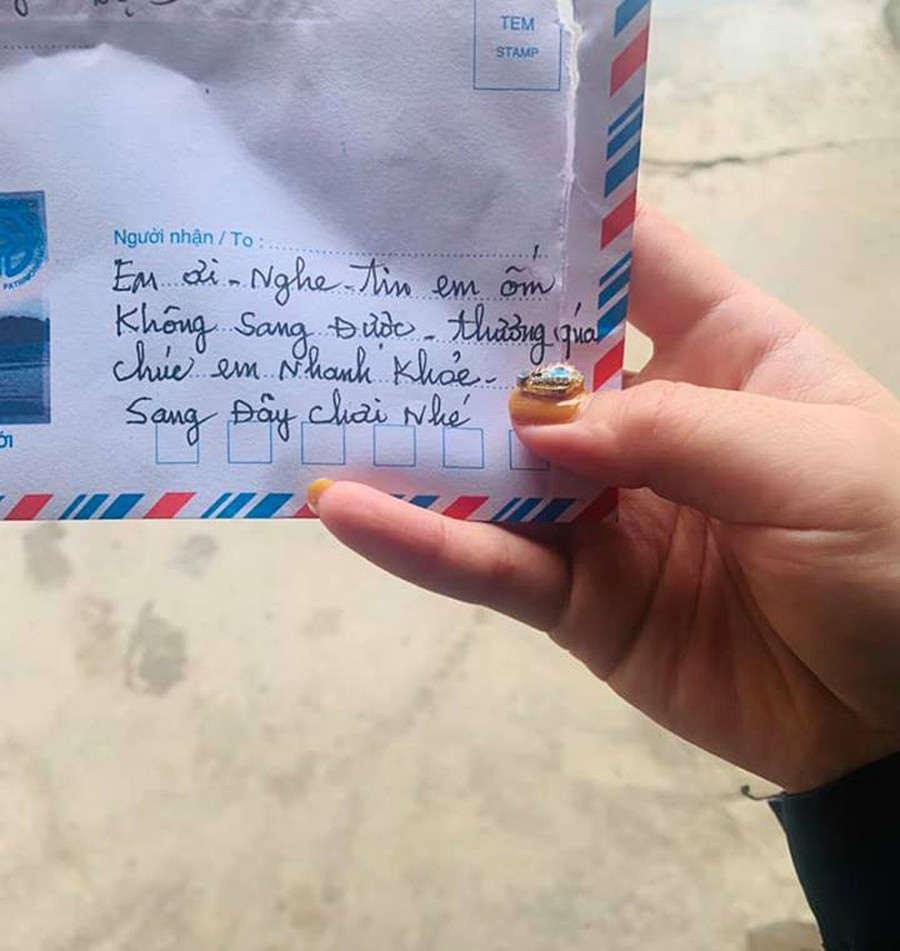 TEM
STAMP
Người nhận / To :
Em ơi - Nghe tin em ốm
Không Sang Được - thương qúa
chúc em Nhanh Khỏe -
Sang Đây chơi Nhé